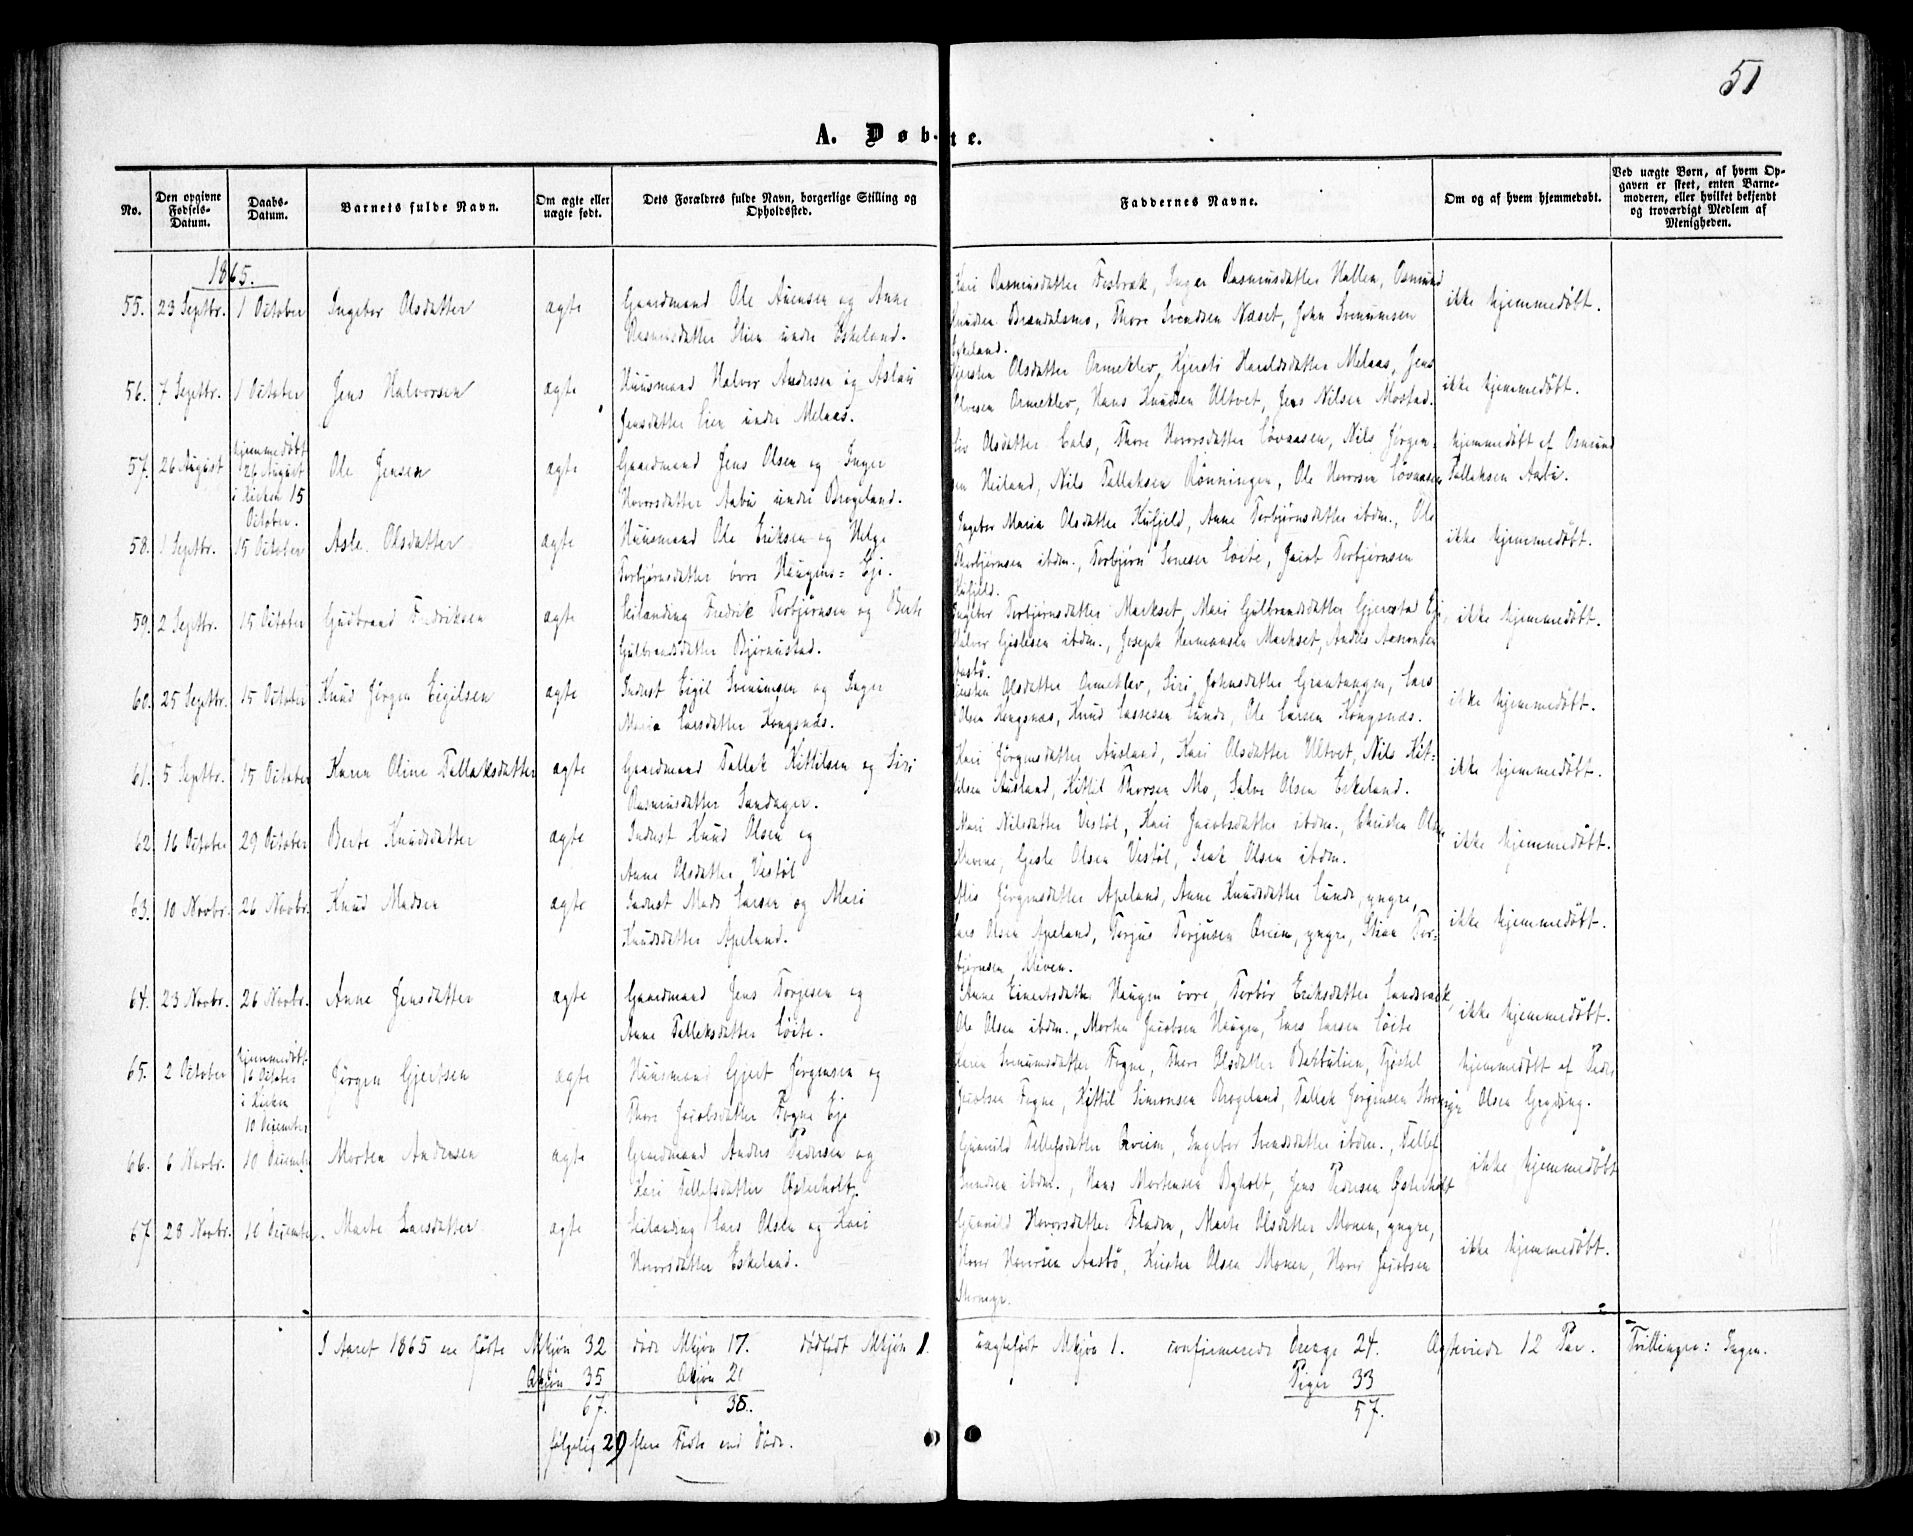 51
A. Døbte.
No.
Den opgivne Fødsels-Datum.
Daabs-Datum.
Barnets fulde Navn.
Om ægte eller uægte født.
Dets Forældres fulde Navn, borgerlige Stilling og Opholdssted.
Faddernes Navne.
Om og af hvem hjemmedøbt.
Ved uægte Børn, af hvem Opgaven er skeet, enten Barnemoderen, eller hvilket bekjendt og troværdigt Medlem af Menigheden.
1865.
55. 23 Septbr. 1 October Ingebor Olsdatter ægte Gaardmand Ole Auensen og Anne
Rasmusdatter Stien under Eskeland.
Kari Rasmusdatter Fosbræk, Inger Rasmusdatter Hallen, Osmund
Knudsen Brændalsmo, Thore Svendsen Næset, John Svenumsen
Eskeland.
ikke hjemmedøbt.
56. 7 Septbr. 1 October Jens Halvorsen ægte Huusmand Halvor Andersen og Aslau
Jensdatter Lien under Melaas.
Kjersten Olsdatter Ormeklev, Kjersti Haraldsdatter Melaas, Jens
Olvesen Ormeklev, Hans Knudsen Ultvet, Jens Nilsen Mostad.
ikke hjemmedøbt.
57. 26 August hjemmedøbt
26 August
i Kirken 15
October.
Ole Jensen ægte Gaardmand Jens Olsen og Inger
Hovorsdatter Aabø under Brogeland.
Liv Olsdatter Eals, Thore Hovorsdatter Løvaasen, Nils Jørgen-
sen Heiland, Nils Tallaksen Rønningen, Ole Hovorsen Løvaasen
hjemmedøbt af Osmund
Tallaksen Aabø.
58. 1 Septbr. 15 October Asle Olsdatter ægte Huusmand Ole Eriksen og Helge
Torbjørnsdatter øvre Haugens Eje.
Ingebor Maria Olsdatter Kufjeld, Anne Torbjørnsdatter ibdm., Ole
Thorbjørnsen ibdm., Torbjørn Løite, Jacob Torbjørnsen
Kufjeld.
ikke hjemmedøbt.
59. 2 Septbr. 15 October Gudbrand Fredriksen ægte Fredrik Torbjørnsen og Berte
Gulbrandsdatter Bjørnustad.
Ingebor Torbjørnsdatter Markset, Mari Gulbrandsdatter Gjerstad Eje,
Halvor Gislesen ibdm., Joseph Hermansen Markset, Anders Aanonsen
Aasbø.
ikke hjemmedøbt.
60. 25 Septbr. 15 October Knud Jørgen Eigilsen ægte Inderst Eigil Svenumsen og Inger
Maria Larsdatter Kongsnæs.
Kirsten Olsdatter Ormeklev, Siri Johnsdatter Grantangen, Lars
Olsen Kongsnæs, Knud Lassesen Lunde, Ole Larsen Kongsnæs.
ikke hjemmedøbt.
61. 5 Septbr. 15 October Karen Oline Tallaksdatter ægte Gaardmand Tallak Kittilsen og Siri
Rasmusdatter Sandager.
Kari Jørgensdatter Ausland, Kari Olsdatter Ultvet, Nils Kit-
tilsen Ausland, Kittil Thorsen Mo, Salve Olsen Eskeland.
ikke hjemmedøbt.
62 16 October 29 October Berte Knudsdatter ægte Inderst Knud Olsen og
Anne Olsdatter Vestøl
Mari Nilsdatter Vestøl, Kari Jacobsdatter ibdm., Christen Olsen
Gisle Olsen Vestøl, Isak Olsen ibdm.
ikke hjemmedøbt.
63. 10 Novbr. 26 Novbr. Knud Madsen ægte Inderst Mads Larsen og Mari
Knudsdatter Apeland.
Jørgensdatter Apeland, Anne Knudsdatter Lunde, yngre,
Lars Olsen Apeland, Torjus Torjusen Qveim, yngre, Stian Tor-
bjørnsen Moen.
ikke hjemmedøbt.
64. 23 Novbr. 26 Novbr. Anne Jensdatter ægte Gaardmand Jens Torjesen og
Anne Tallaksdatter Løite.
Anne Einertsdatter Haugen øvre, Torbor Eriksdatter Sandsvack,
Ole Olsen ibdm., Morten Jacobsen Haugen, Lars Larsen Løite
ikke hjemmedøbt.
65. 2 October hjemmedøbt
16 October
i Kirken
10 December
Jørgen Gjertsen ægte Huusmand Gjert Jørgensen og
Thore Jacobsdatter Fogne Eje
Karen Svenumsdatter Fogne, Thore Olsdatter Barbulien, Tjøstel
Jacobsen Fogne, Kittil Simonsen Brogeland, Tallak Jørgensen
hjemmedøbt af Peder
Olsen Gryting.
66. 6 Novbr. 10 December Morten Andersen ægte Gaardmand Anders Pedersen og
Kari Tellefsdatter Østerholt.
Gunnild Tellefsdatter Qveim, Ingebor Svendsdatter ibdm., Tellef
Svendsen ibdm., Hans Mortensen Byholt, Jens Pedersen Østerholt
ikke hjemmedøbt
67 28 Novbr. 10 December. Marte Larsdatter ægte Lars Olsen og Kari
Hovorsdatter Eskeland.
Gunnild Hovorsdatter Fladen, Marte Olsdatter Monen, yngre,
Hovor Hovorsen Aasbø, Kirsten Olsen Monen, Hovor Jacobsen
ikke hjemmedøbt.
I Aaret 1865 ere fødte Mkjøn 32 døde Mkjøn 17. dødfødt Mkjøn 1. uægtefødt Mkjøn 1. confirmerede Drenge 24. Ægteviede 12 Par. Tvillinger: Ingen.
Qkjøn 35 Qkjøn 21 Piger 33
67. 38. 57.
følgelig 29 flere Fødte end Døde.